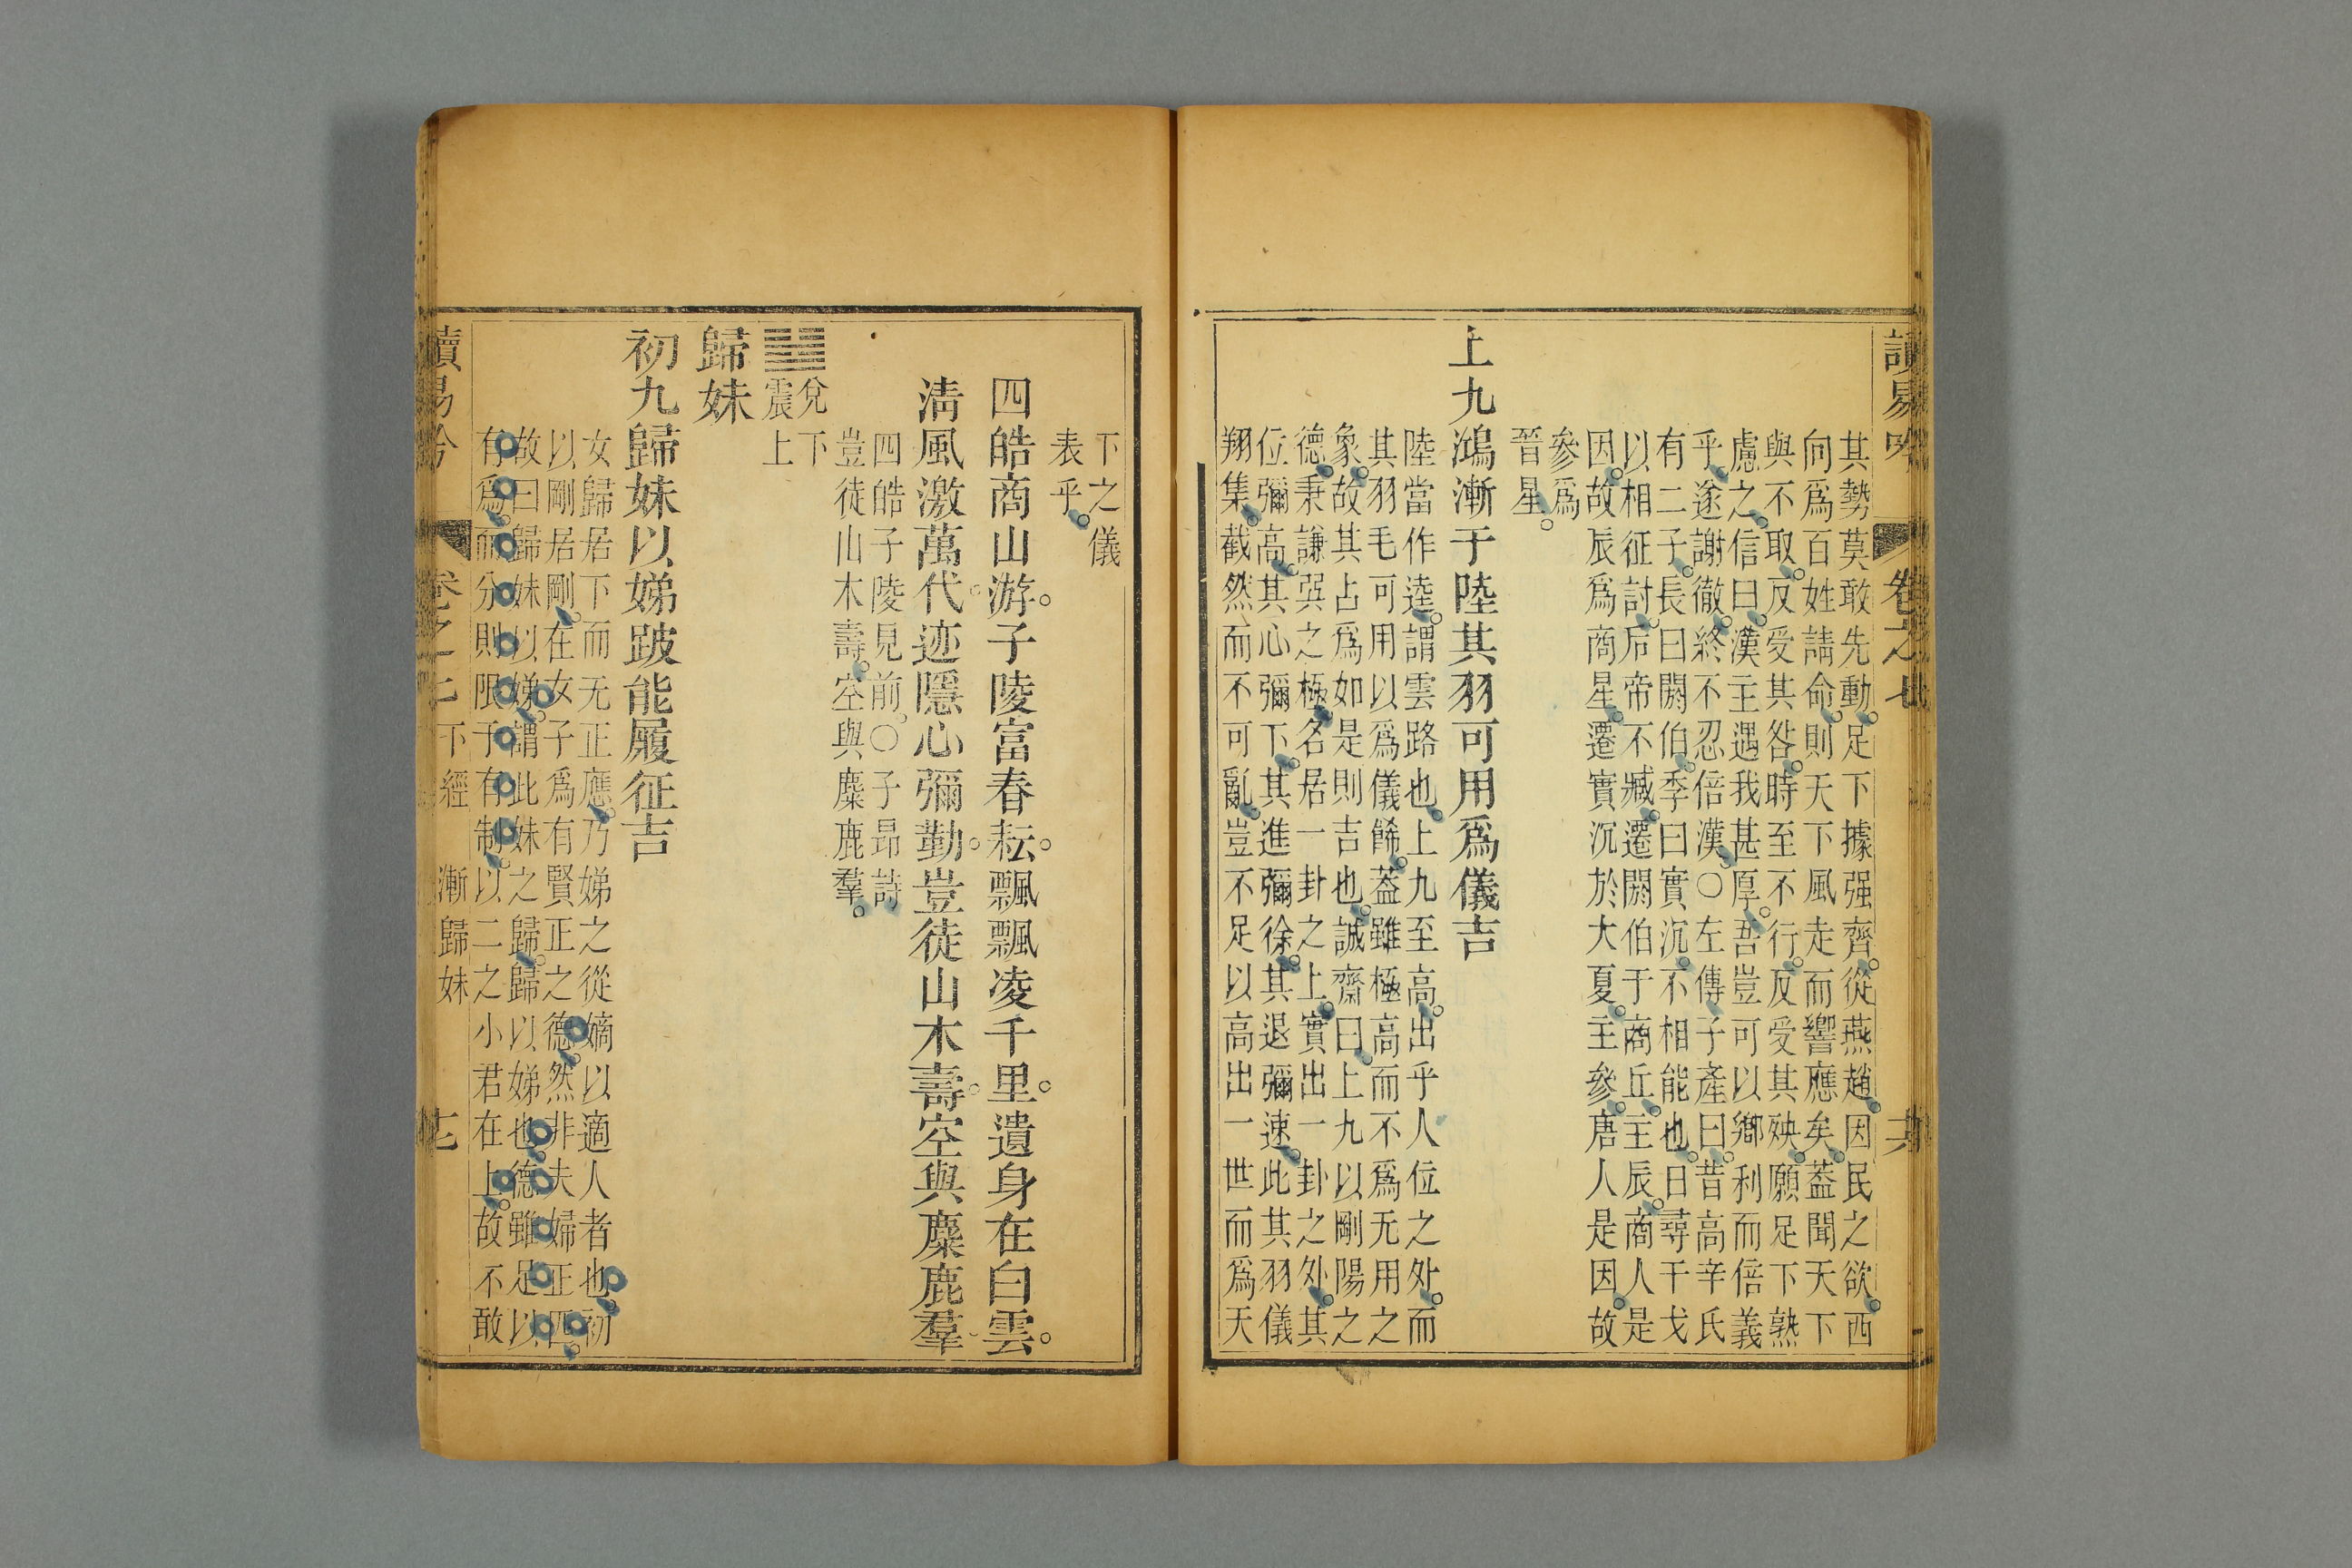 讀易吟
卷之七
六
其勢莫敢先動足下據强齊從燕趙因民之欲西
向爲百姓請命則天下風走而響應矣蓋聞天下
與不取反受其咎時至不行反受其殃願足下熟
慮之信曰漢主遇我甚厚吾豈可以鄉利而倍義
乎遂謝徹終不忍倍漢〇左傳子產曰昔高辛氏
有二子長曰閼伯季曰實沉不相能也日尋干戈
以相征討后帝不臧遷閼伯于商丘主辰商人是
因故辰爲商星遷實沉於大夏主參唐人是因故
參爲
晉星
上九鴻漸于陸其羽可用爲儀吉
陸當作逵謂雲路也上九至高出乎人位之外而
其羽毛可用以爲儀餙蓋雖極高而不爲无用之
象故其占爲如是則吉也誠齋曰上九以剛陽之
德秉謙巽之極名居一卦之上實出一卦之外其
位彌高其心彌下其進彌徐其退彌速此其羽儀
翔集截然而不可亂豈不足以高出一世而爲天
下之儀
表乎
四皓商山游子陵富春耘飄飄凌千里遺身在白雲
淸風激萬代迹隱心彌勤豈徒山木壽空與麋鹿羣
四皓子陵見前〇子昻詩
豈徒山木壽空與麋鹿羣
䷵兌下
震上
歸妹
初九歸妹以娣跛能履征吉
女歸居下而无正應乃娣之從嫡以適人者也初
以剛居剛在女子爲有賢正之德然非夫婦正匹
故曰歸妹以娣謂此妹之歸歸以娣也德雖足以
有爲而分則限于有制以二之小君在上故不敢
讀易吟
卷之七
下經
漸歸妹
七